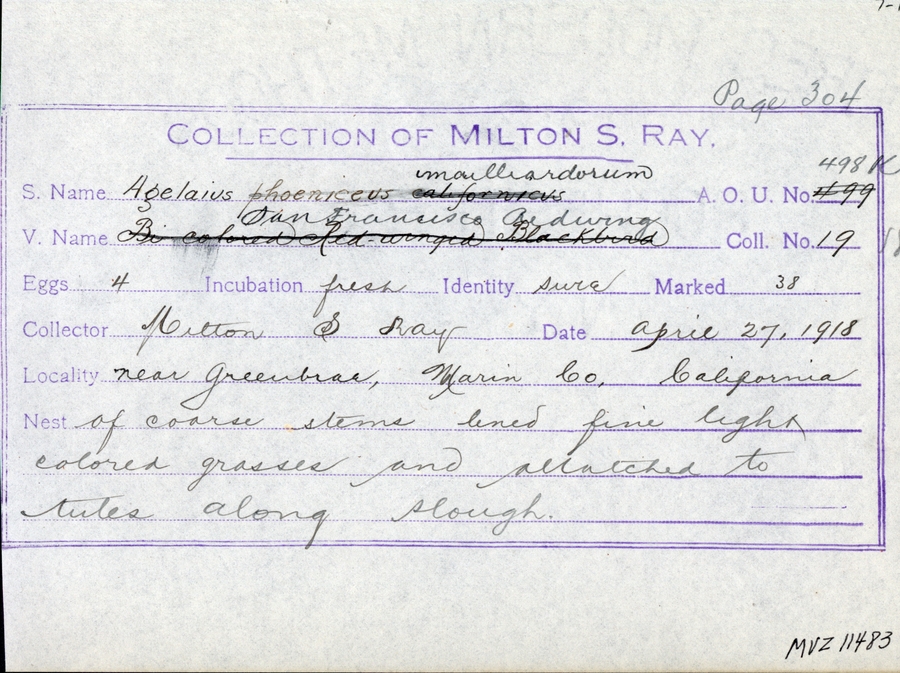 Page 304
COLLECTION OF MILTON S. RAY.
mailliardorum
498 K
S. Name Agelaius phoeniceus californicus A. O. U. No. 499
San Francisco Redwing
V. Name Bi colored Red-winged Blackbird Coll. No. 19
Eggs 4 Incubation fresh Identity sure Marked 38
Collector Milton S Ray Date April 27, 1918
Locality near Greenbrae, Marin Co, California
Nest of coarse stems lined fine light
colored grasses and attatched to
tules along slough.
MVZ 11483